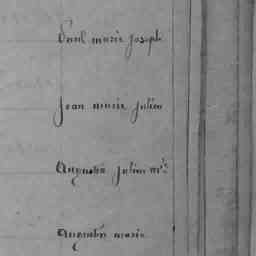 Paul marie joseph
jean marie julien
augustin julien mie
augustin marie